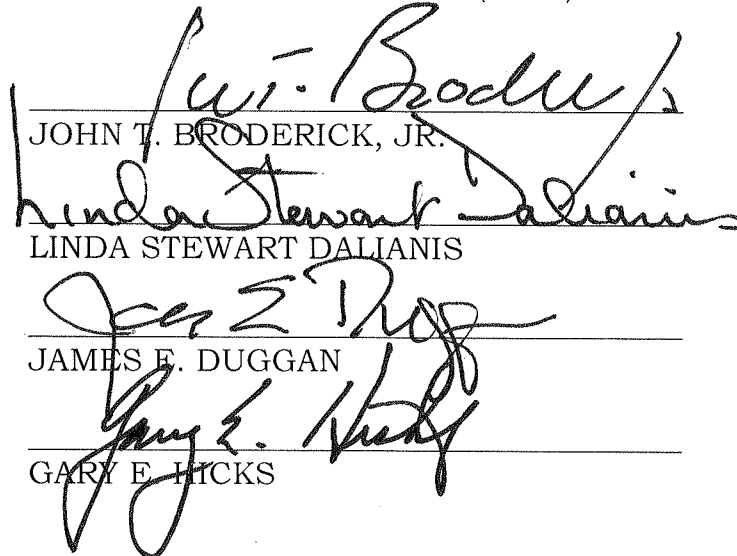 John T. Broderick, Jr.
JOHN T. BRODERICK, JR.
Linda Stewart Dalianis
LINDA STEWART DALIANIS
James E. Duggan
JAMES E. DUGGAN
Gary E. Hicks
GARY E. HICKS